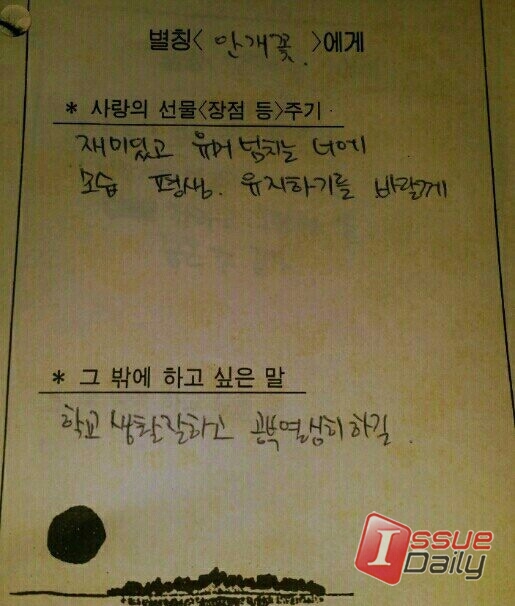 별칭< 안개꽃 >에게
* 사랑의 선물<장점 등>주기
재미있고 유머 넘치는 너에
모습 평생. 유지하기를 바랄게
* 그 밖에 하고 싶은 말
학교 생활잘하고 공부열심히하길.
ISSUE
Daily